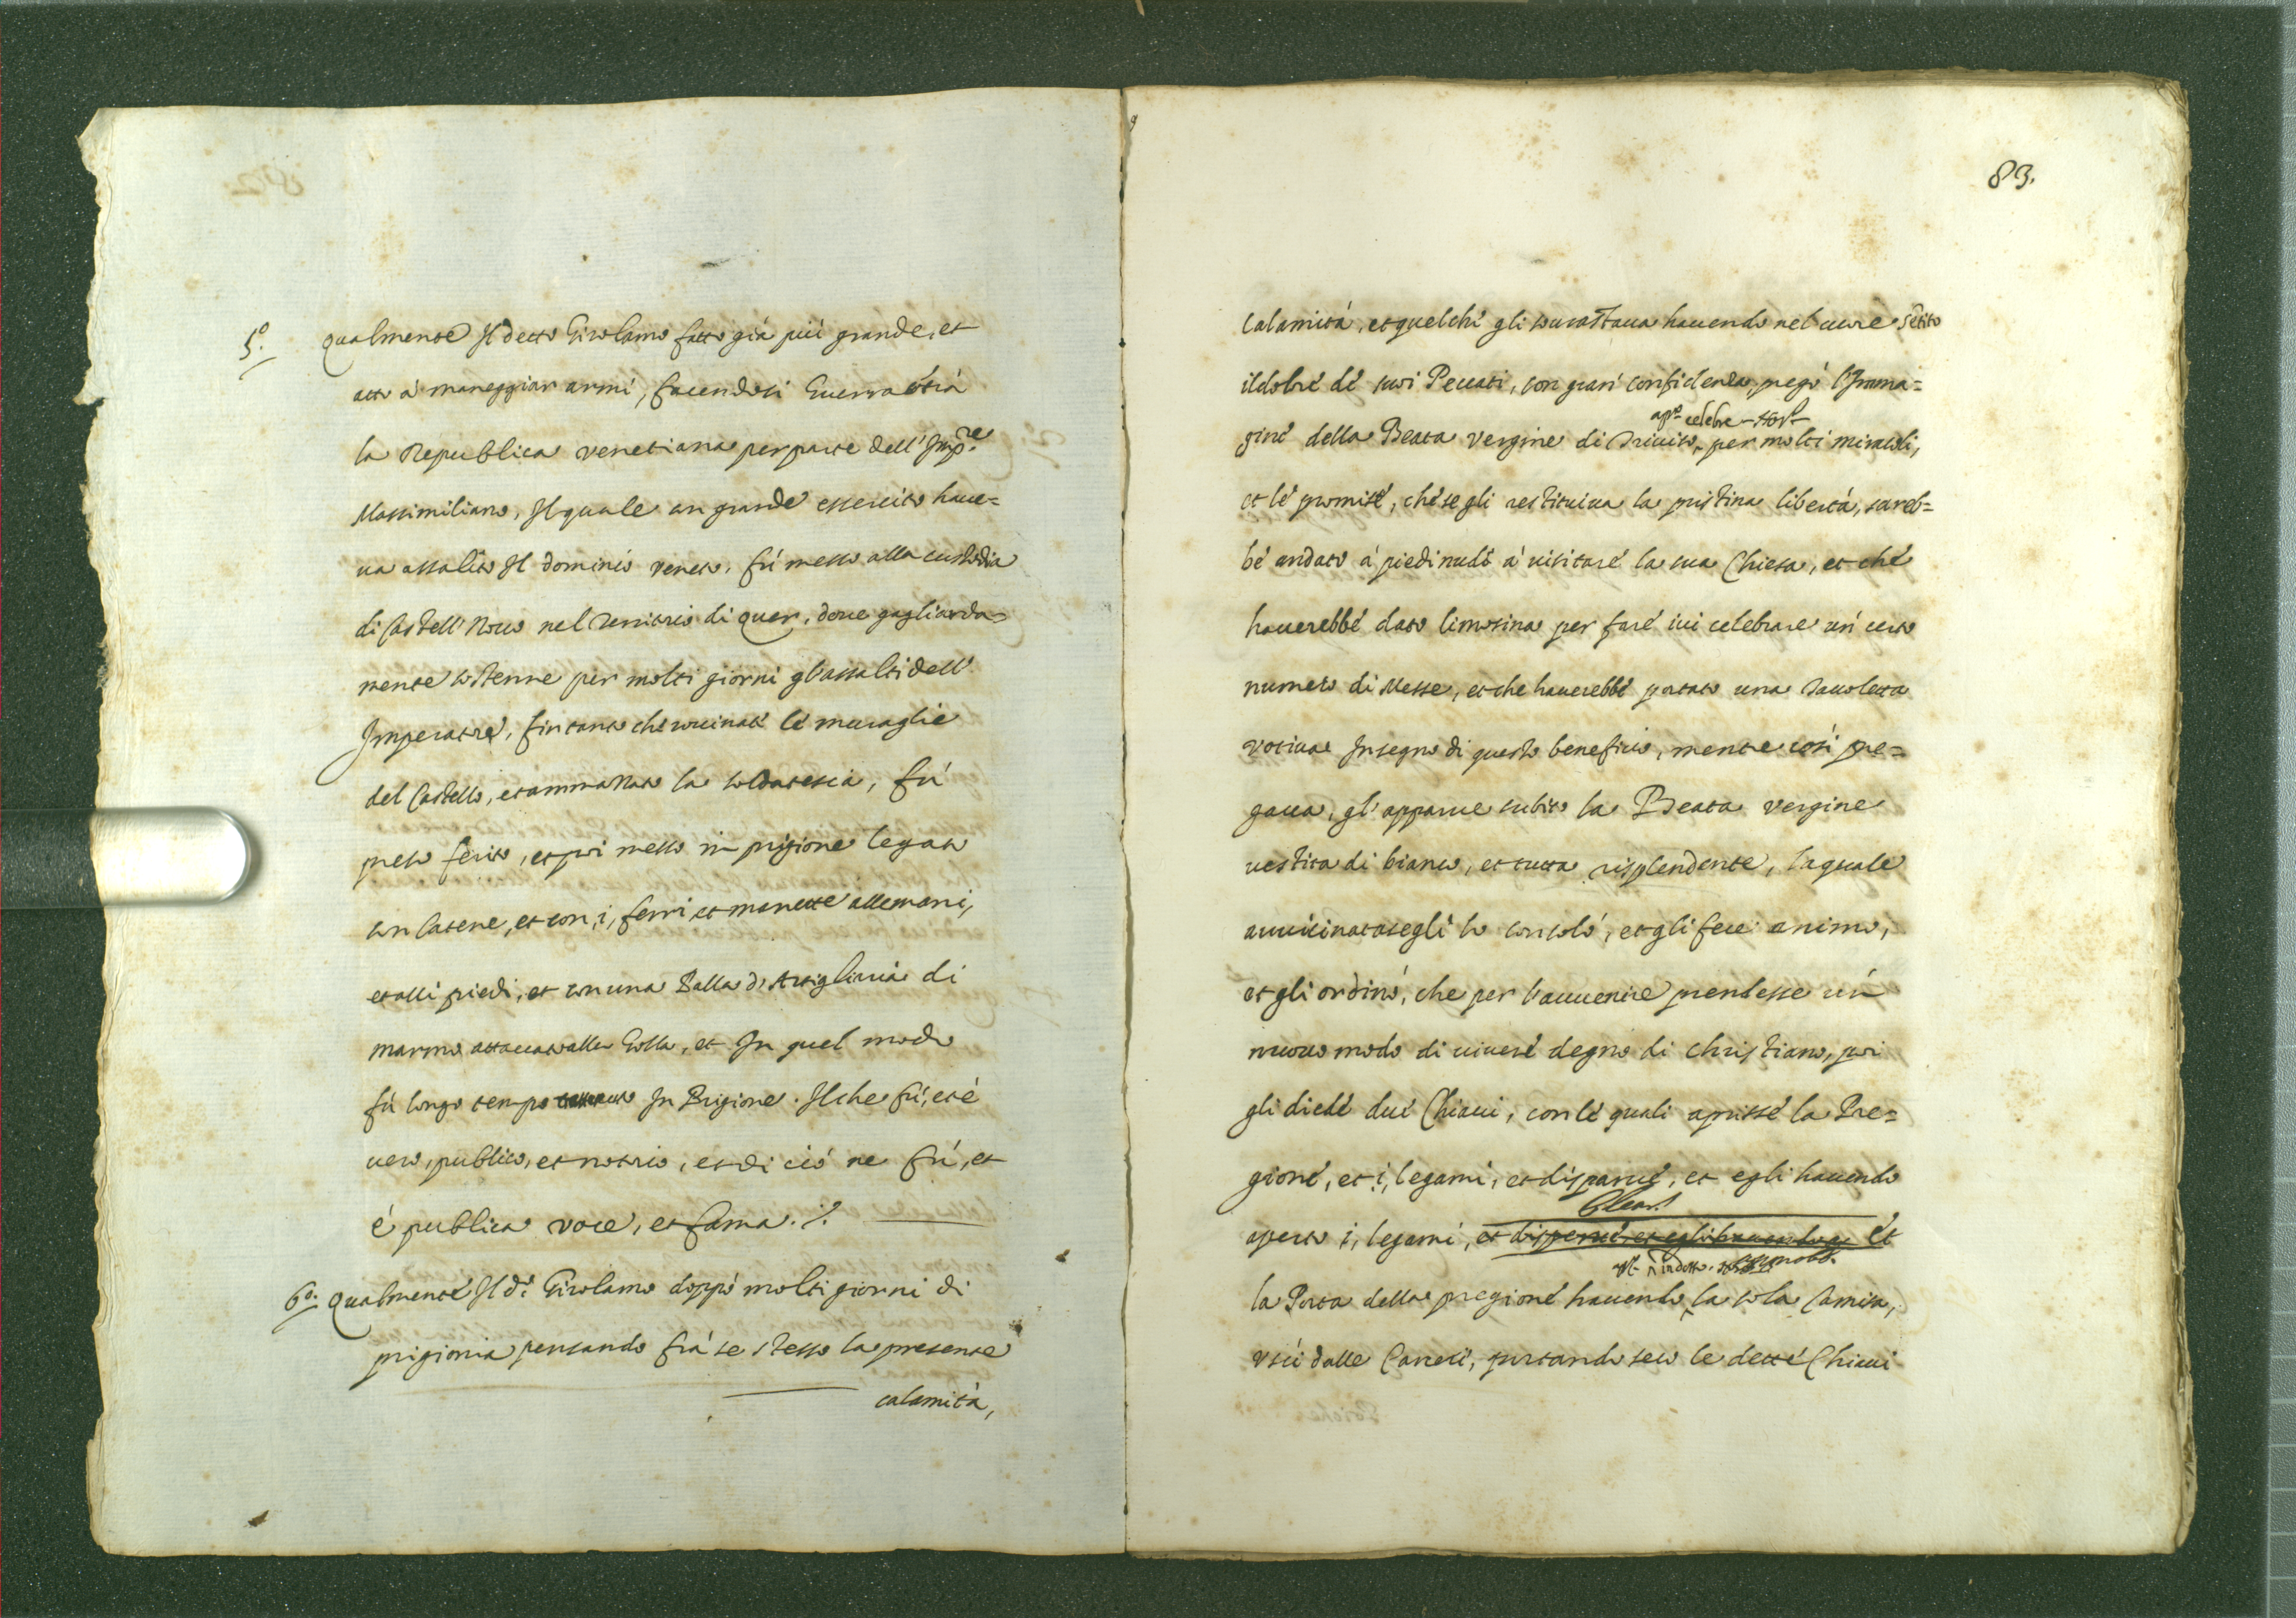 5º. Qualmente Il detto Girolamo fatto già più grande, et
atto à maneggiar armi, facendosi Guerra cótra
la Republica venetiana per parte dell' Imp.re
Massimiliano, Il quale cn grande essercito haue=
ua assalito Il dominio veneto, fú messo alla custodia
di Castell' Nouo nel Territorio di Quer, doue gagliarda=
mente sostenne per molti giorni gl'assalti dell'
Imperatre, fin tanto che rouinate le muraglie
del Castello, et ammassato la soldatesca, fú
preso ferito, et poi messo in prigione legato
con Catene, et con, i, ferri et manette alle mani,
et alli piedi, et con una Balla d'Artigliaria di
marmo attaccato alla Golla, et In quel modo
fú longo tempo In Prigione. Ilche fú, et è
uero, publico, et notorio, et di ciò ne fú, et
é publica voce, et fama ./.
6º. Qualmente Il dº. Girolamo doppò molti giorni di
prigionia pensando frà se stesso la presente
calamità,
83.
Calamità, et quelche gli sourastaua hauendo nel cuore sẽtito
il dolore de suoi Peccati, con gran confidenza, pregò l'Imma=
celebre
gine della Beata Vergine di Triuiso, per molti miracoli,
et le promise, che se gli restituiua la pristina libertà, sareb=
be andato à piedi nudi à uisitare la sua Chiesa, et che
hauerebbe dato limosina per fare iui celebrare un' certo
numero di Messe, et che hauerebbe portato una Tauoletta
votiua In segno di questo beneficio, mentre così pre=
gaua, gl'apparue subito la Beata Vergine
uestita di bianco, et tutta risplendente, la quale
auuicinatasegli lo consolò, et gli fece animo,
et gli ordinò, che per l'auuenire prendesse un
nuouo modo di uiuere degno di Christiano, poi
gli diede due Chiaui, con le quali aprisse la Pre=
gione, et, i, legami, et disparue, et egli hauendo
aperto i, legami, et disparue, et egli hauendo et
indosso
la Porta della pregione hauendo la sola Camisa,
uscì dalle Carceri, portando seco le dette Chiaui